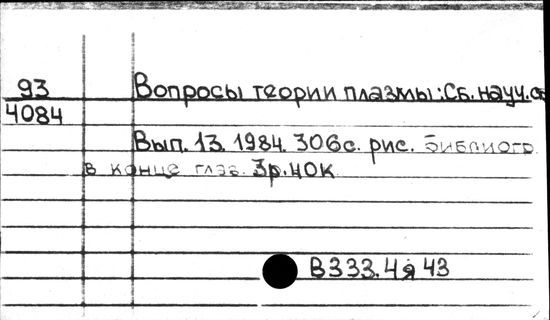 93 Вопросы теории плазмы: Сб. науч. с
4084
Вып. 13. 1984. 306с. рис. библиогр
в конце глав. 3р.40к
В333.4я43